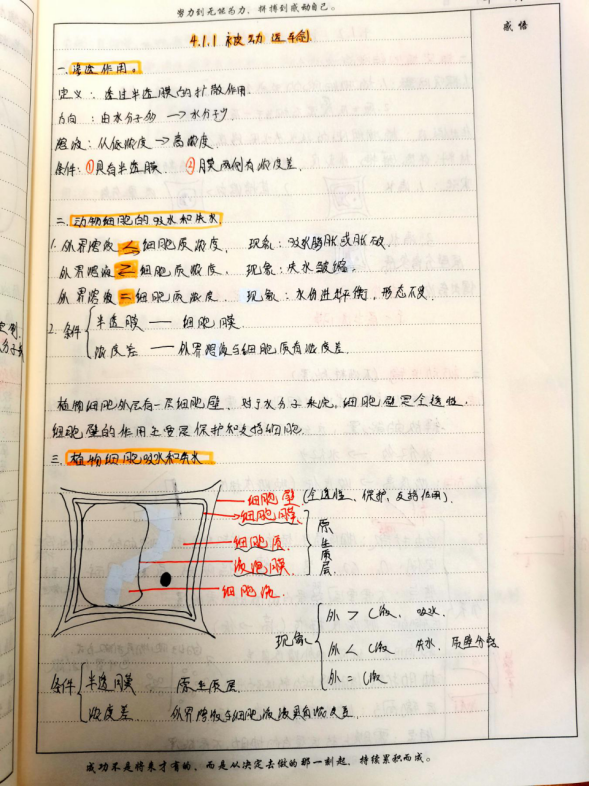 努力到无能为力，拼搏到感动自己。
感悟
4.1.1 被动运输
一.渗透作用。
定义：透过半透膜的扩散作用.
方向：由水分子多→水分子少
浓度：从低浓度→高浓度
条件：①具有半透膜. ②膜两侧有浓度差.
二.动物细胞的吸水和失水.
1. 外界溶液<细胞质浓度， 现象：吸水膨胀或胀破.
外界溶液>细胞质浓度， 现象：失水皱缩，
外界溶液=细胞质浓度. 现象：水份进出平衡，形态不变.
2. 条件 半透膜——细胞膜.
浓度差——外界溶液与细胞质有浓度差.
植物细胞外层有一层细胞壁，对于水分子来说，细胞壁是全透性，
细胞壁的作用主要是保护和支持细胞.
三.植物细胞吸水和失水
细胞壁(全透性、保护、支持作用).
细胞膜
细胞质
液泡膜
原生质层
细胞液.
现象 外>C液， 吸水.
外<C液 失水. 质壁分离
外=C液
条件 半透膜 原生质层.
浓度差. 外界溶液与细胞液具有浓度差.
成功不是将来才有的，而是从决定去做的那一刻起，持续累积而成。